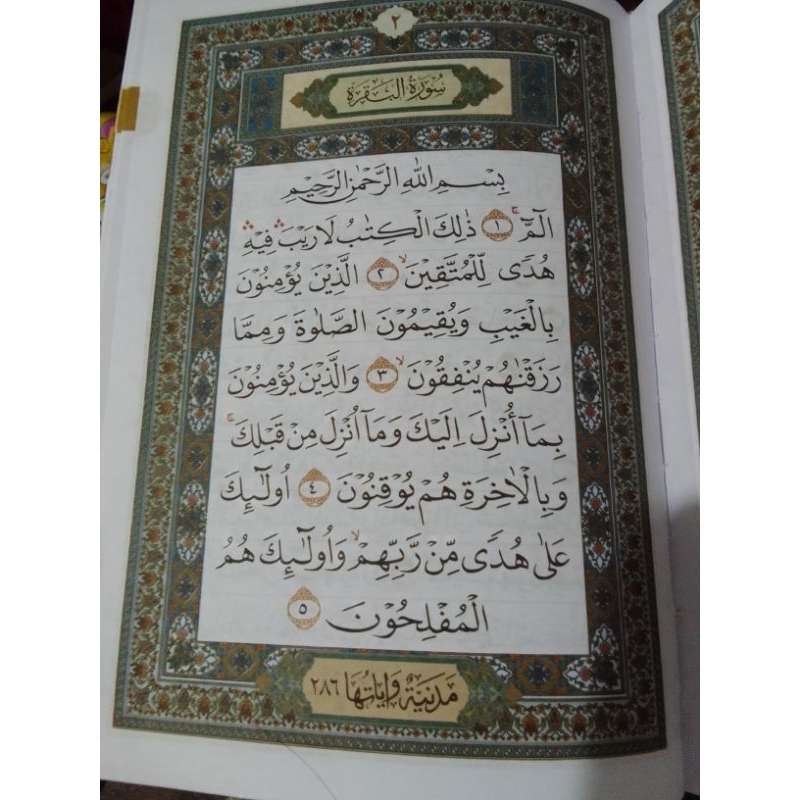 ٢
سُورَةُ الْبَقَرَةِ
بِسْمِ اللّٰهِ الرَّحْمٰنِ الرَّحِيْمِ
الٓمّٓ ۚ ١ ذٰلِكَ الْكِتٰبُ لَا رَيْبَ ۛ فِيْهِ ۛ
هُدًى لِّلْمُتَّقِيْنَ ۙ ٢ الَّذِيْنَ يُؤْمِنُوْنَ
بِالْغَيْبِ وَيُقِيْمُوْنَ الصَّلٰوةَ وَمِمَّا
رَزَقْنٰهُمْ يُنْفِقُوْنَ ۙ ٣ وَالَّذِيْنَ يُؤْمِنُوْنَ
بِمَآ اُنْزِلَ اِلَيْكَ وَمَآ اُنْزِلَ مِنْ قَبْلِكَ ۚ
وَبِالْاٰخِرَةِ هُمْ يُوْقِنُوْنَ ٤ اُولٰۤىِٕكَ
عَلٰى هُدًى مِّنْ رَّبِّهِمْ ۙ وَاُولٰۤىِٕكَ هُمُ
الْمُفْلِحُوْنَ ٥
مَدَنِيَّةٌ وَاٰيَاتُهَا ٢٨٦